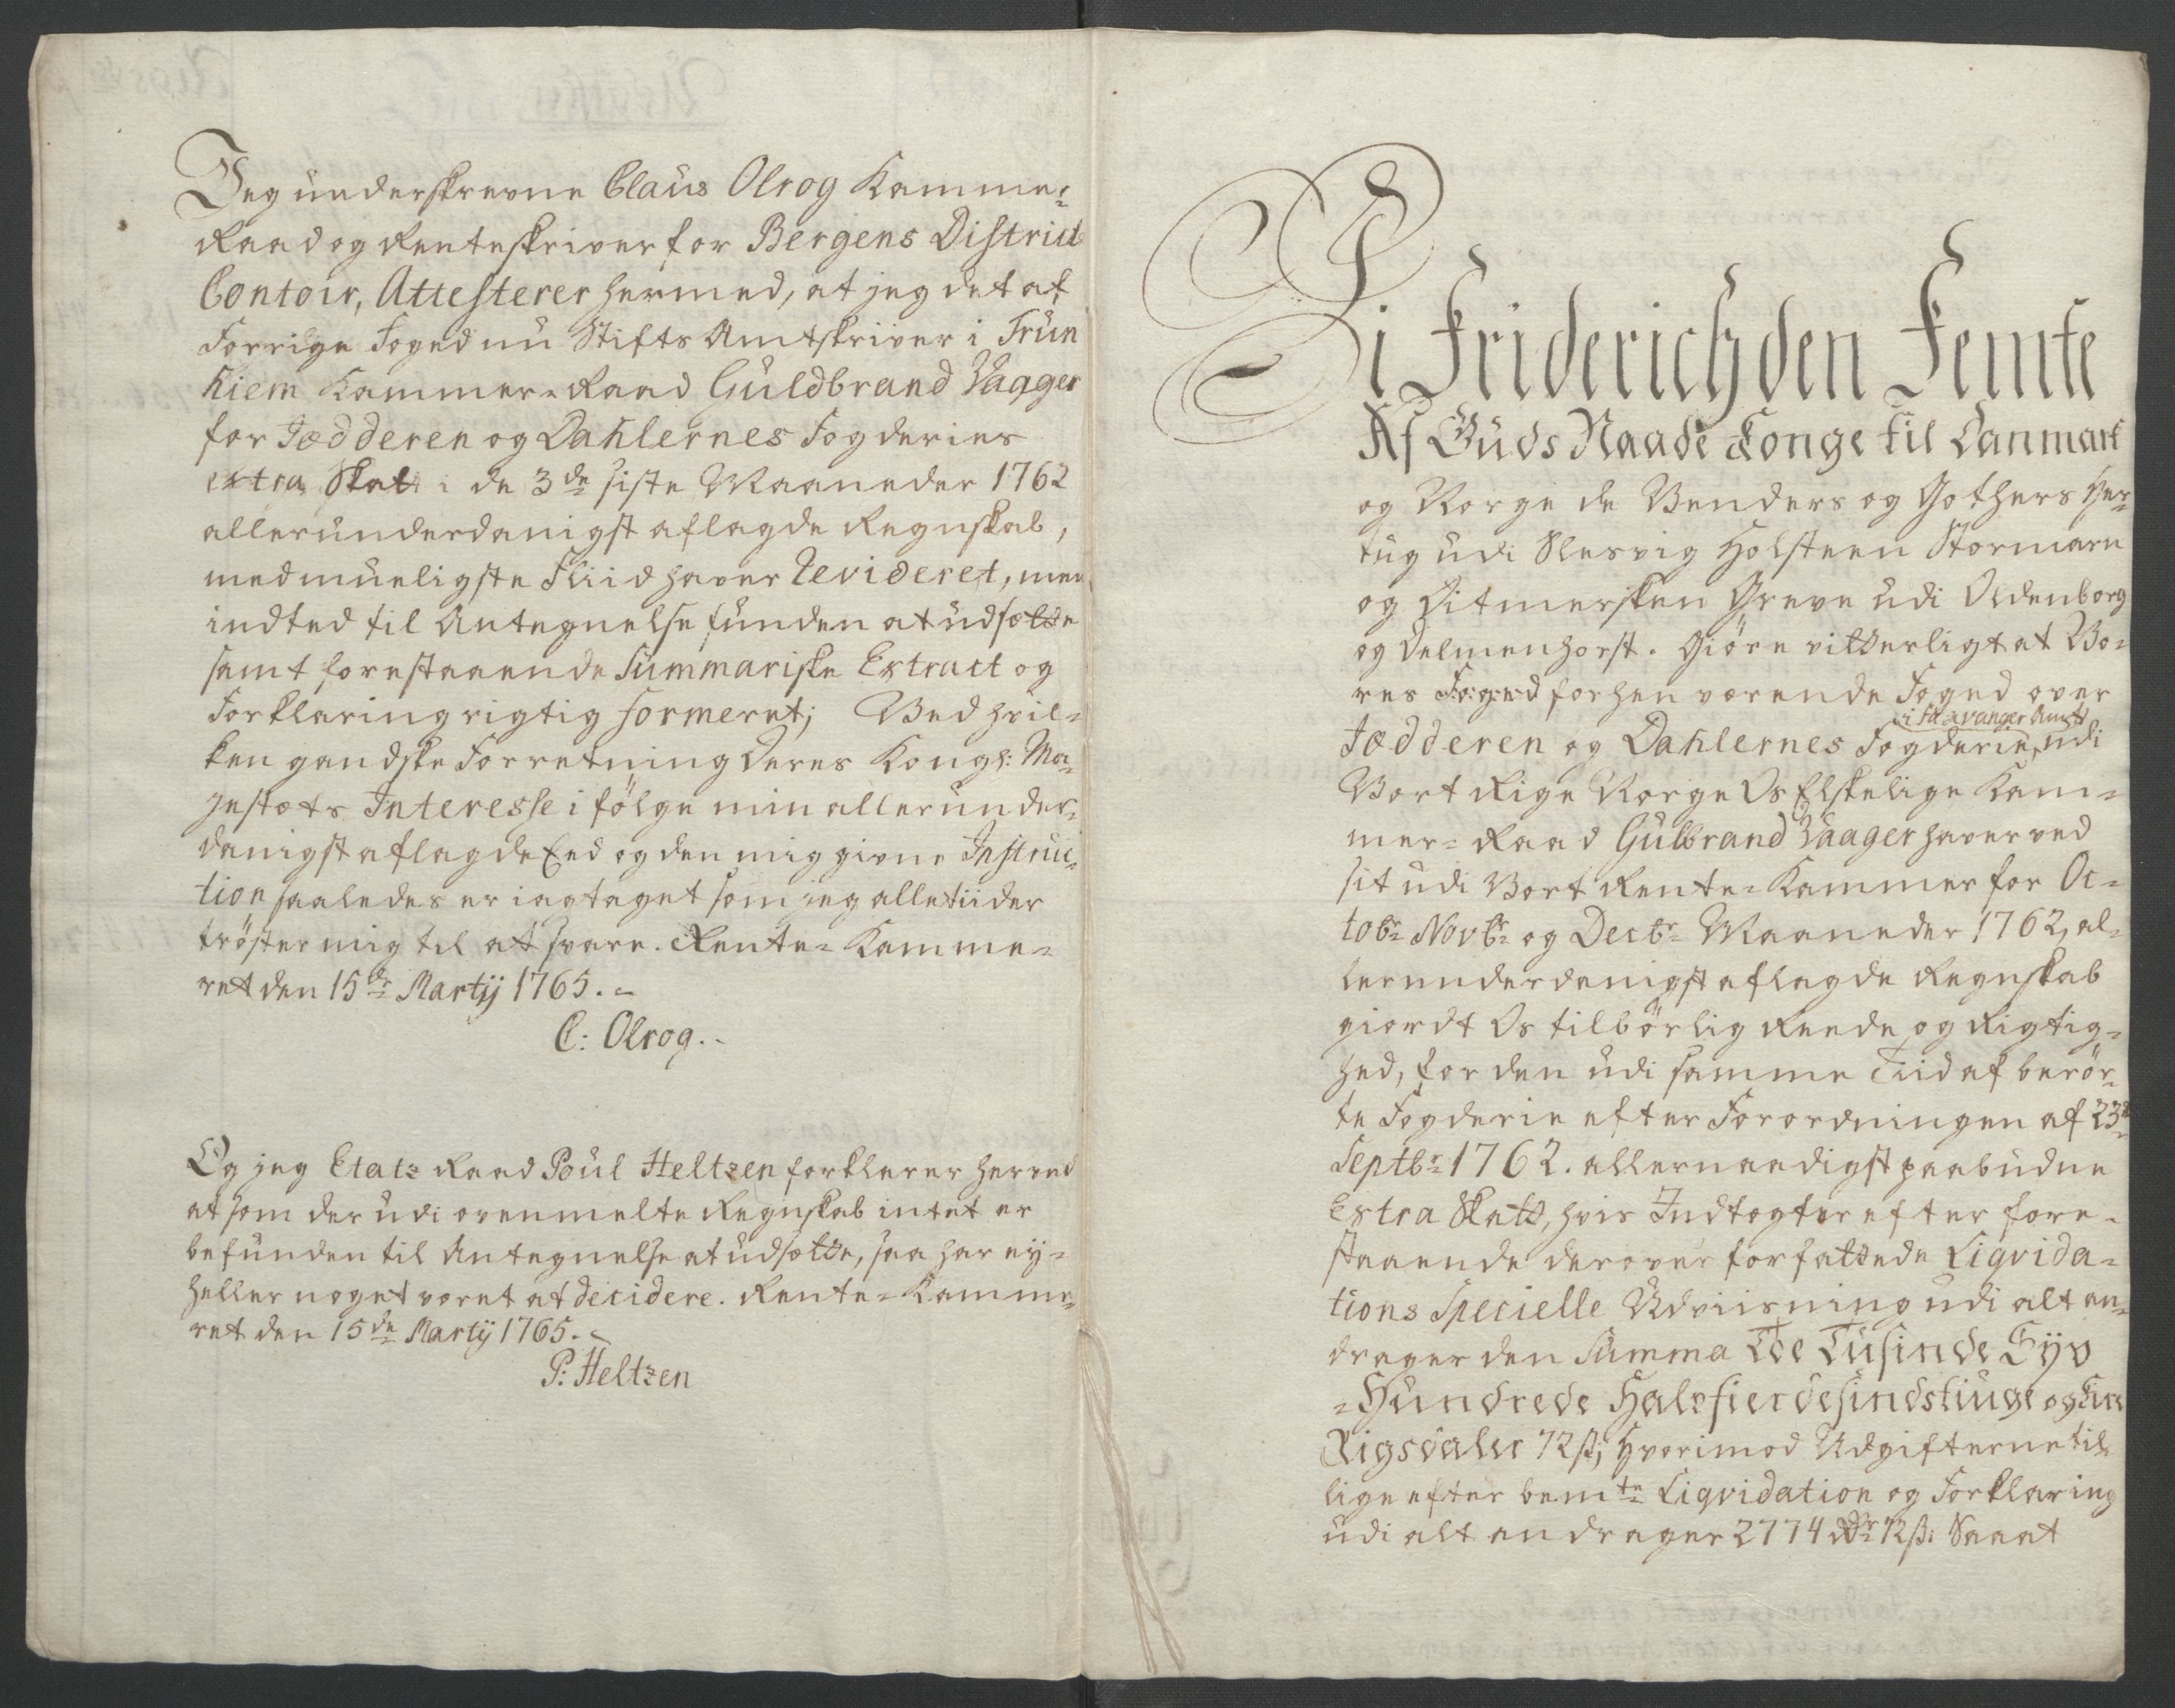 Jeg underskrevne Claus Olrog Kamme-
Raad og Renteskriver for Bergens District
Contoir, Attesterer hermed, at jeg det af
Forrige Foged nu Stifts Amtskriver i Trun
hiem Kammer-Raad Guldbrand Vaager
for Jædderen og Dahlernes Fogderies
extra Skatt i de 3de siste Maaneder 1762
allerunderdanigst aflagde Regnskab,
med mueligste Fliid haver Revideret, men
indted til Antegnelse funden at udsætte
samt forestaaende Summariske Extract og
Forklaring rigtig formeret; Ved hvil-
ken gandske Forretning Deres Kongl: Ma-
jestæts Interesse i følge min allerunder-
danigst aflagde Eed og den mig givne Instruc-
tion saaledes er iagtaget som jeg alle tiider
trøster mig til at svare. Rente-Kamme-
ret den 15de Martij 1765.
C: Olrog.
Og jeg Etatz Raad Poul Heltzen forklarer herved
at som der udi ovenmelte Regnskab intet er
befunden til Antegnelse at udsætte, saa har ey-
heller noget været at decidere. Rente-Kamme-
ret den 15de Martij 1765.
P: Heltzen
Vi Friderich den Femte
Af Guds Naade Konge til Danmark
og Norge de Venders og Gothers Her-
tug udi Slesvig Holsteen Stormarn
og Ditmersken Greve udi Oldenborg
og Delmenhorst. Giøre vitterligt at Vo-
res Foged forhen værende Foged over
i Stavanger Amt
Jædderen og Dahlernes Fogderie, udi
Vort Rige Norge Os Elskelige Kam-
mer-Raad Gulbrand Vaager haver ved
sit udi Vort Rente-Kammer for Oc-
tobr: Novbr: og Decbr: Maaneder 1762, al-
lerunderdanigst aflagde Regnskab
giordt Os tilbørlig Reede og Rigtig-
hed, for den udi samme Tiid af berør-
te Fogderie efter Forordningen af 23de
Septbr: 1762. allernaadigst paabudne
Extra Skatt, hvis Indtægter efter fore-
staaende derover forfattede Liqvida-
tions Specielle Udviisning udi alt an-
drager den Summa Toe Tusinde Syv
-Hundrede Halvfierdesindstiuge og Fire
Rigsdaler 72 s; Hvorimod Udgifterne til-
lige efter bemte Liqvidation og Forklaring
udi alt andrager 2774 Rdr 72 s: Saa at